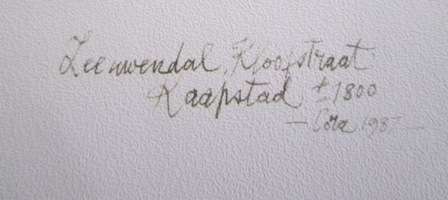 Leeuwendal, Kloofstraat
Kaapstad ± 1800
— Cora 198